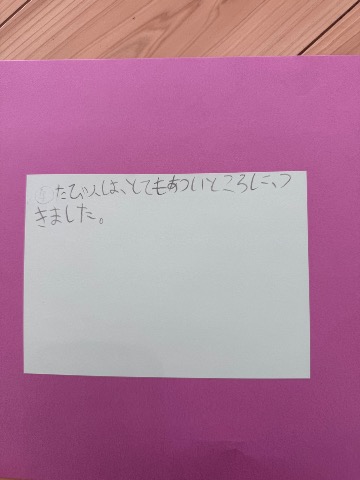 ①たび人は、とてもあついところに、つ
きました。